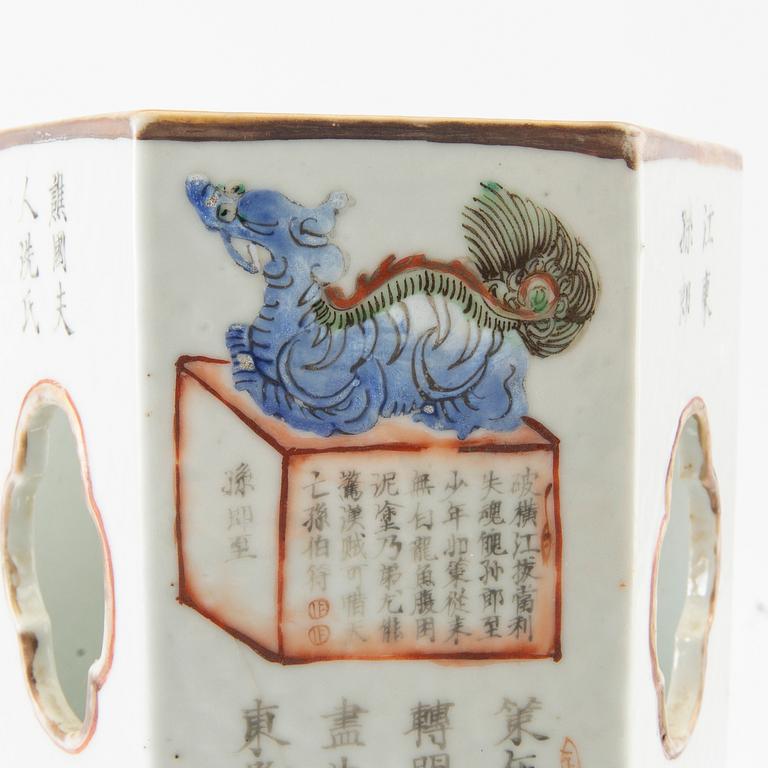 江東
孫郎
破橫江拔當利
失魂魄孙郎至
少年如策從未
無白龍魚腹困
泥塗乃弟尤能
驚漢賊可惜天
亡孫伯符
孫郎至
策
轉
盡
東
譙國夫
人洗氏